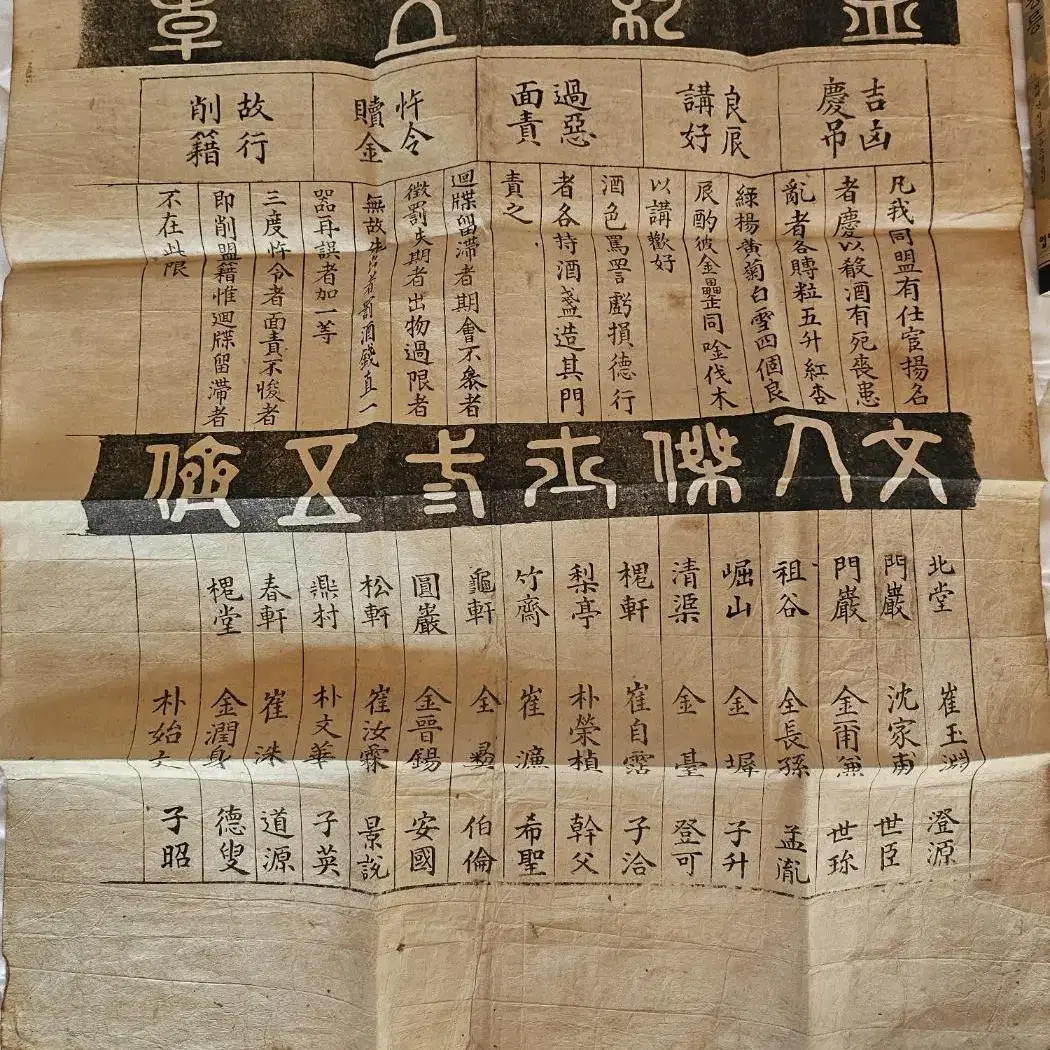 立紀立章
吉凶慶吊
良辰講好
過惡面責
忤令贖金
故行削籍
凡我同盟有仕宦揚名
者慶以殺酒有死喪患
亂者各賻粒五升紅杏
綠楊黃菊白雪四個良
辰酌彼金罍同唫伐木
以講歡好
酒色罵詈虧損德行
者各持酒盞造其門
責之
迴牒留滯者期會不參者
徵罰失期者出物過限者
無故失者罰酒錢直一
器再誤者加一等
三度忤令者面責不悛者
即削盟籍惟迴牒留滯者
不在此限
文人傑士三五儉
北堂 崔玉淵 澄源
門巖 沈家甫 世臣
門巖 金甫兼 世珎
祖谷 全長孫 孟胤
崛山 金墀 子升
清渠 金臺 登可
槐軒 崔自霑 子洽
梨亭 朴榮楨 幹父
竹齋 崔濂 希聖
龜軒 全 伯倫
圓巖 金晉錫 安國
松軒 崔汝霖 景說
鼎村 朴文華 子英
春軒 崔洙 道源
槐堂 金潤身 德叟
朴始文 子昭